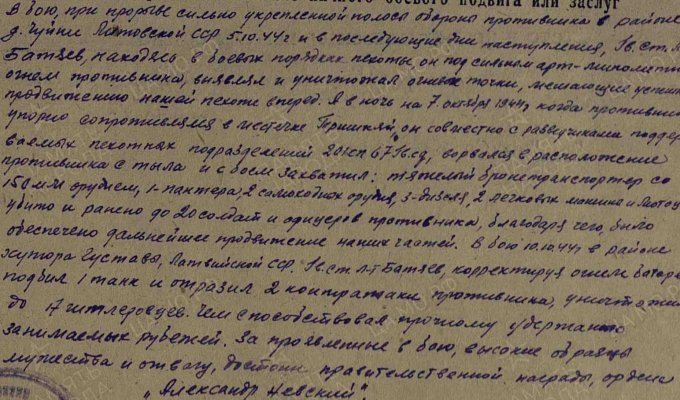 боевого подвига или заслуг
В бою, при прорыве сильно укрепленной полосы обороны противника в районе
д. Литовской ССР 5.10.44г и в последующие дни наступления, Гв.ст.
Батяев, находясь в боевых порядках пехоты, он под сильным арт-минометн
огнем противника, выявлял и уничтожал огневые точки, мешающие успешн
продвижению нашей пехоте вперед. А в ночь на 7 октября 1944г, когда противник
упорно сопротивлялся в местечке он совместно с разведчиками поддер
ваемых пехотных подразделений 201сп 67гв.сд, ворвался в расположение
противника с тыла и с боем захватил: тяжелый бронетранспортер со
150 м/м орудием, 1-пантера, 2 самоходных орудия, 3-дизеля, 2 легковых машины и
убито и ранено до 20 солдат и офицеров противника, благодаря чего, было
обеспечено дальнейшее продвижение наших частей. В бою 10.10.44г в районе
хутора Густавы, Латвийской ССР. Гв.ст л-т Батяев, корректируя огнем батаре
подбил 1 танк и отразил 2 контратаки противника, уничтожив
до 17 гитлеровцев. Чем способствовал прочному удержанию
занимаемых рубежей. За проявленные в бою, высокие образцы
мужества и отвагу, достоин правительственной награды, ордена
"Александр Невский".